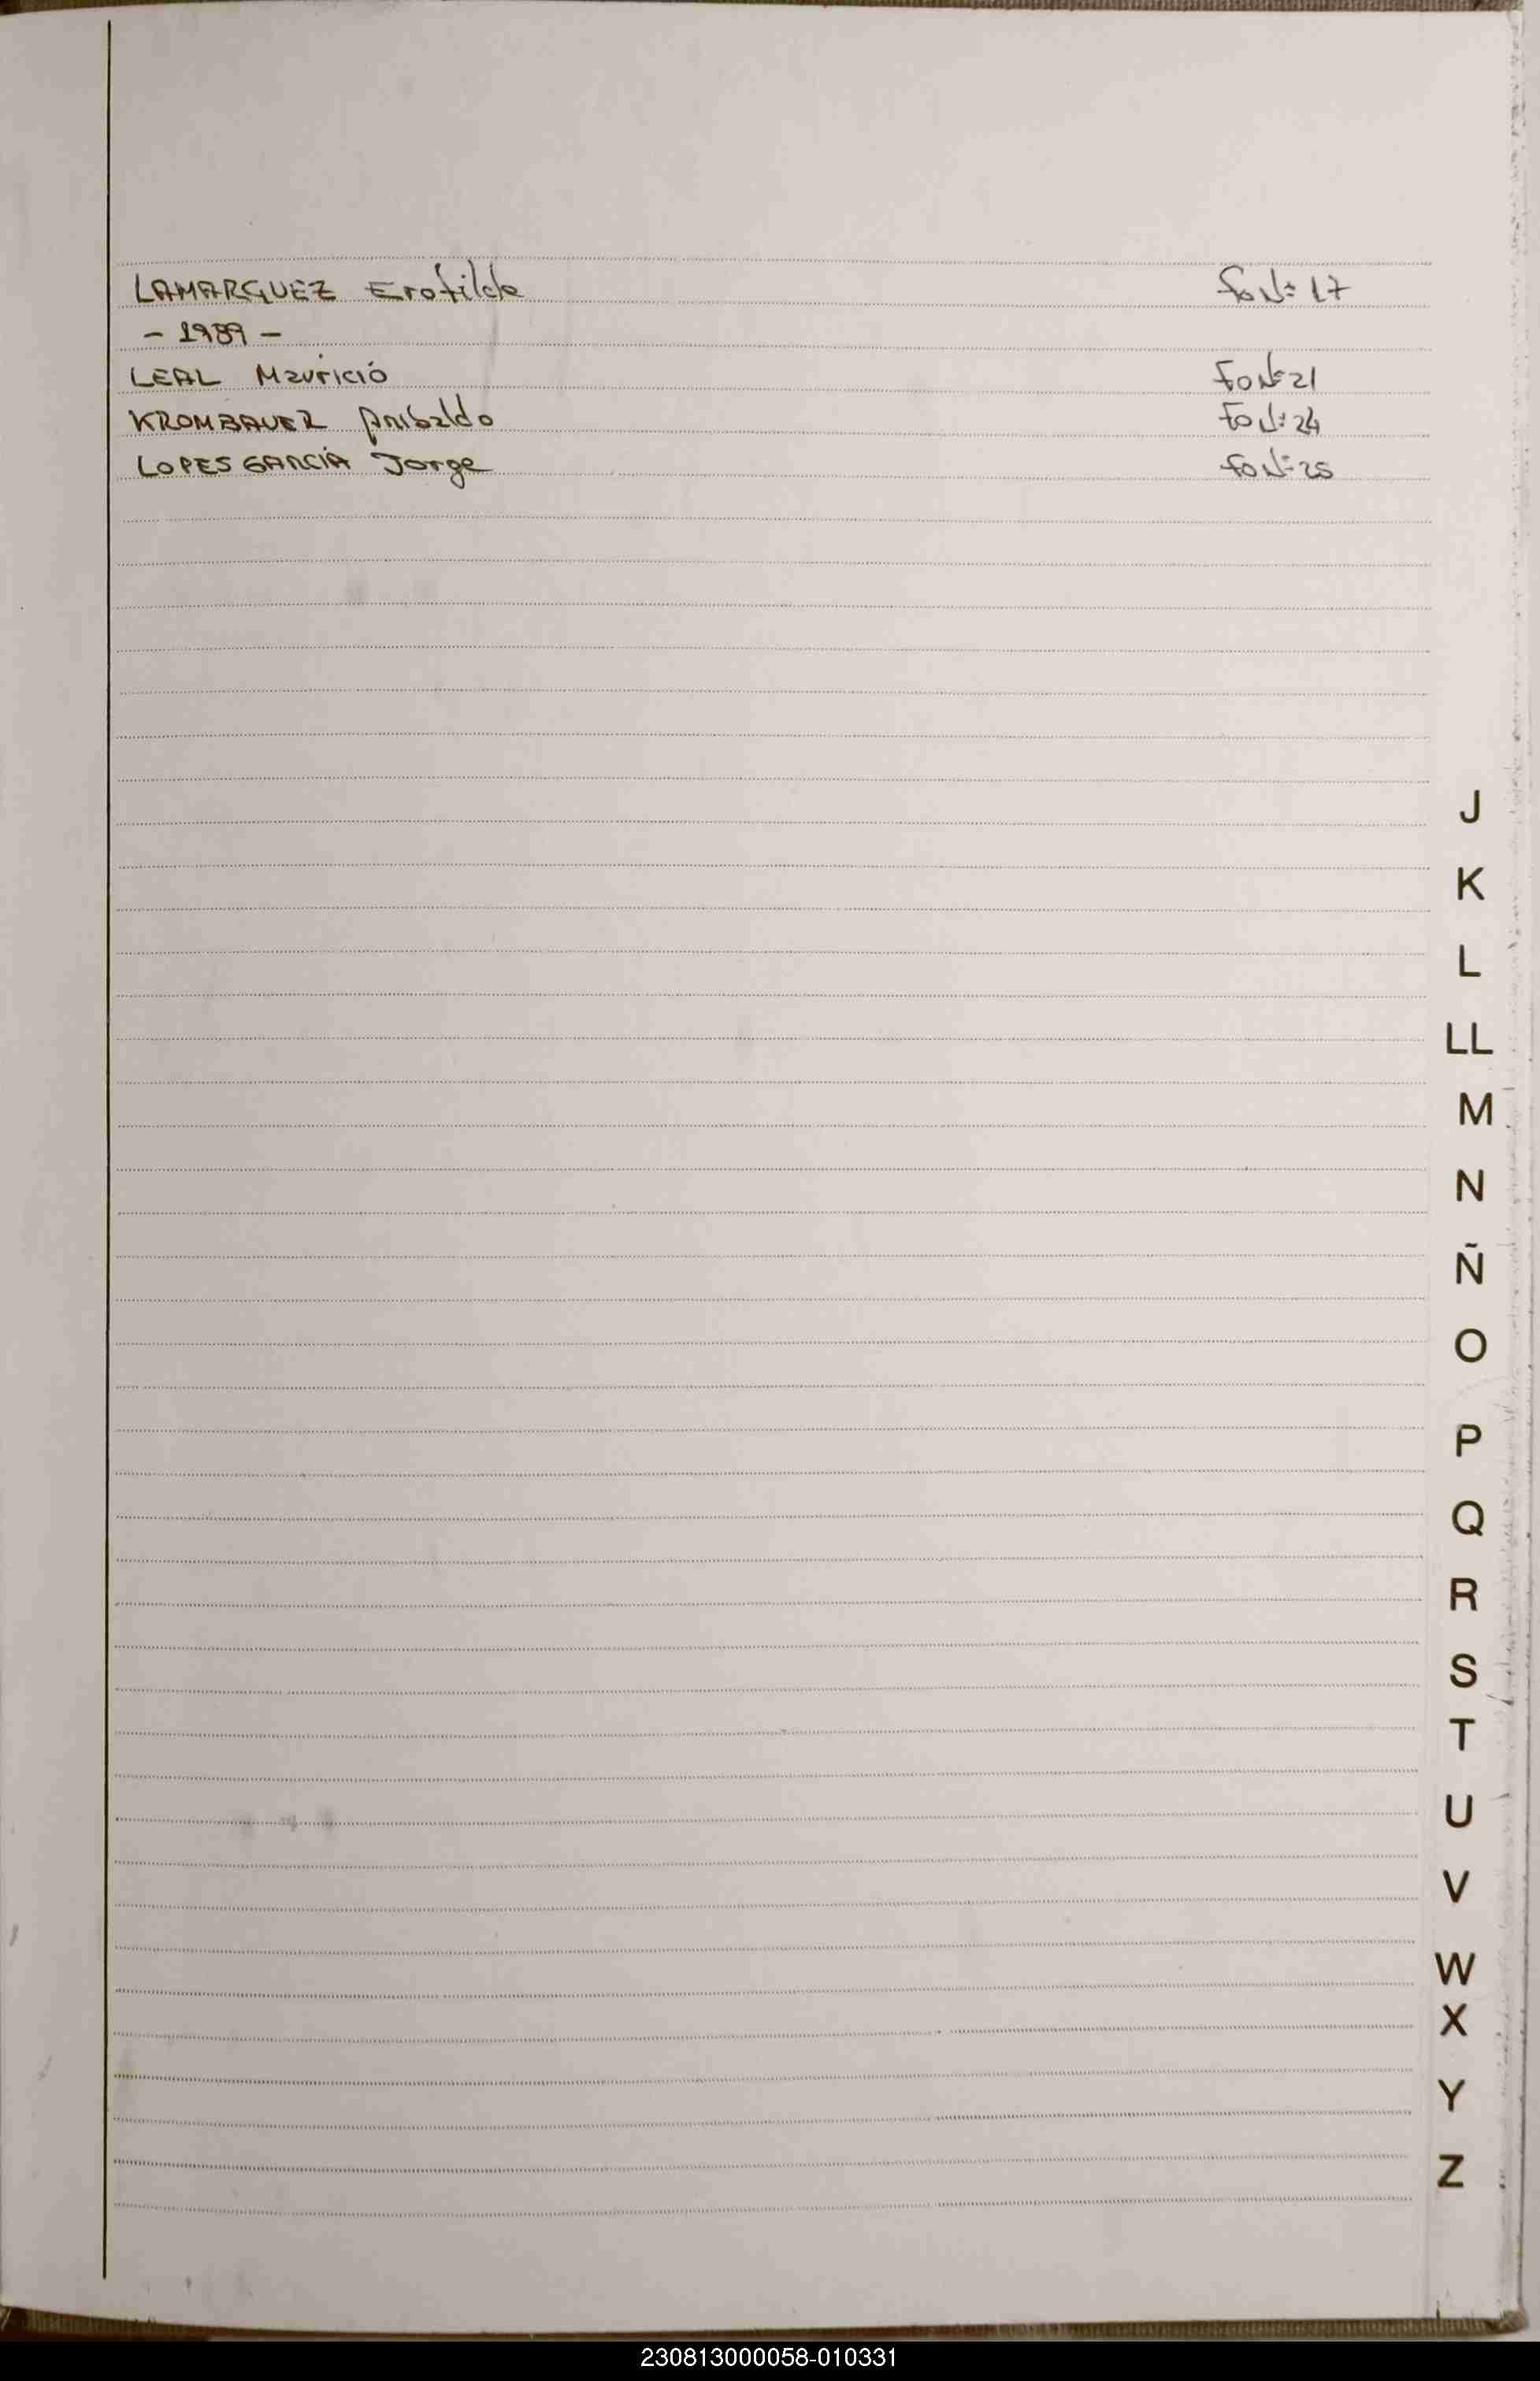 LAMARQUEZ Erotilde Fo Nº 17
- 1989 -
LEAL Mauricio Fo Nº 21
KROMBAUER Anibaldo Fo Nº 24
LOPES GARCIA Jorge Fo Nº 25
J
K
L
LL
M
N
Ñ
O
P
Q
R
S
T
U
V
W
X
Y
Z
230813000058-010331